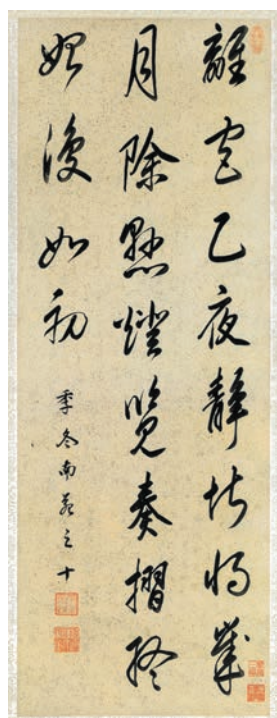 離宮乙夜靜將歲
月除點燈覽奏摺終
始復如初
季冬南苑之十